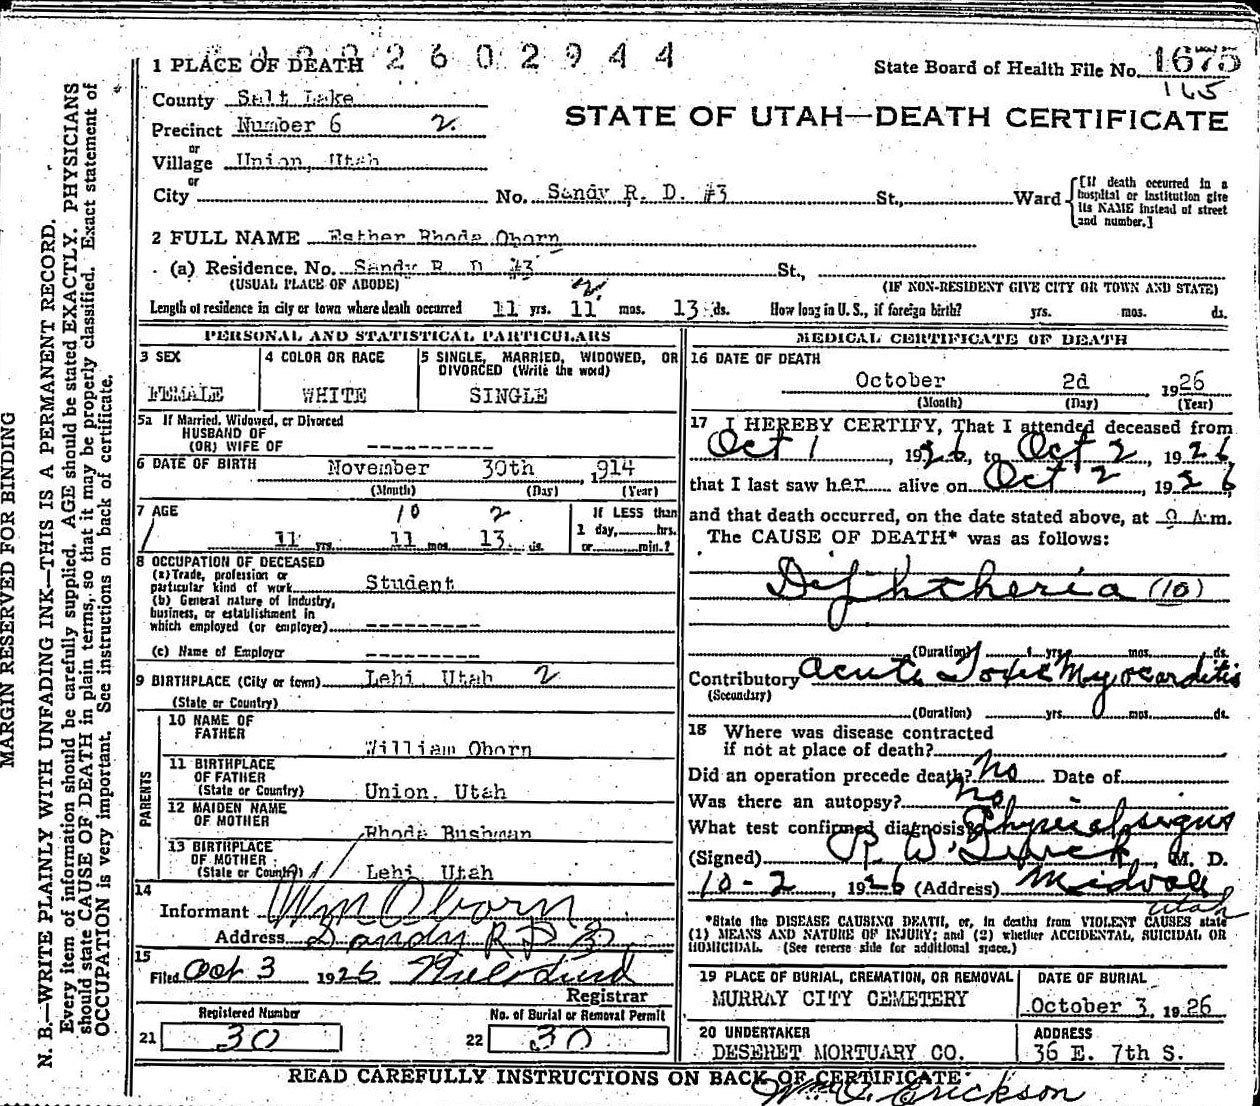 2602944
1 PLACE OF DEATH
State Board of Health File No. 1675
165
County Salt Lake
STATE OF UTAH—DEATH CERTIFICATE
Precinct Number 6 2
or
Village Union, Utah
or
City No. Sandy R. D. #3 St., Ward
[If death occurred in a hospital or institution give its NAME instead of street and number.]
2 FULL NAME Esther Rhoda Oborn
(a) Residence, No. Sandy R D #3 St.,
(USUAL PLACE OF ABODE) (IF NON-RESIDENT GIVE CITY OR TOWN AND STATE)
2
Length of residence in city or town where death occurred 11 yrs. 11 mos. 13 ds. How long in U. S., if foreign birth? yrs. mos. ds.
PERSONAL AND STATISTICAL PARTICULARS
3 SEX
FEMALE
4 COLOR OR RACE
WHITE
5 SINGLE, MARRIED, WIDOWED, OR
DIVORCED (Write the word)
SINGLE
5a If Married, Widowed, or Divorced
HUSBAND OF
(OR) WIFE OF ----------
6 DATE OF BIRTH November 30th , 1914
(Month) (Day) (Year)
7 AGE 10 2
11 yrs. 11 mos. 13 ds.
If LESS than
1 day, hrs.
or min.?
8 OCCUPATION OF DECEASED
(a) Trade, profession or
particular kind of work Student
(b) General nature of industry,
business, or establishment in
which employed (or employer) ---------
(c) Name of Employer ---------
9 BIRTHPLACE (City or town) Lehi Utah 2
(State or Country)
PARENTS
10 NAME OF
FATHER
William Oborn
11 BIRTHPLACE
OF FATHER
(State or Country) Union, Utah
12 MAIDEN NAME
OF MOTHER
Rhoda Bushman
13 BIRTHPLACE
OF MOTHER
(State or Country) Lehi Utah
14
Informant Wm Oborn
Address Sandy R D 3
15
Filed Oct 3 1926
Registrar
Registered Number
21 30
No. of Burial or Removal Permit
22 30
MEDICAL CERTIFICATE OF DEATH
16 DATE OF DEATH
October 2d 1926
(Month) (Day) (Year)
17 I HEREBY CERTIFY, That I attended deceased from
Oct 1, 1926, to Oct 2, 1926
that I last saw her alive on Oct 2, 1926,
and that death occurred, on the date stated above, at 9 A.m.
The CAUSE OF DEATH* was as follows:
Diphtheria (10)
(Duration) yrs. mos. ds.
Contributory acute Toxic Myocarditis
(Secondary)
(Duration) yrs. mos. ds.
18 Where was disease contracted
if not at place of death?
Did an operation precede death? No Date of
Was there an autopsy? No
What test confirmed diagnosis? Physical signs
(Signed) R. W. , M. D.
10-2, 1926 (Address) Midvale
Utah
*State the DISEASE CAUSING DEATH, or, in deaths from VIOLENT CAUSES state
(1) MEANS AND NATURE OF INJURY; and (2) whether ACCIDENTAL, SUICIDAL OR
HOMICIDAL. (See reverse side for additional space.)
19 PLACE OF BURIAL, CREMATION, OR REMOVAL
MURRAY CITY CEMETERY
DATE OF BURIAL
October 3, 1926
20 UNDERTAKER
DESERET MORTUARY CO.
ADDRESS
36 E. 7th S.
READ CAREFULLY INSTRUCTIONS ON BACK OF CERTIFICATE
Erickson
MARGIN RESERVED FOR BINDING
N. B.—WRITE PLAINLY WITH UNFADING INK—THIS IS A PERMANENT RECORD.
Every item of information should be carefully supplied. AGE should be stated EXACTLY. PHYSICIANS
should state CAUSE OF DEATH in plain terms, so that it may be properly classified. Exact statement of
OCCUPATION is very important. See instructions on back of certificate.